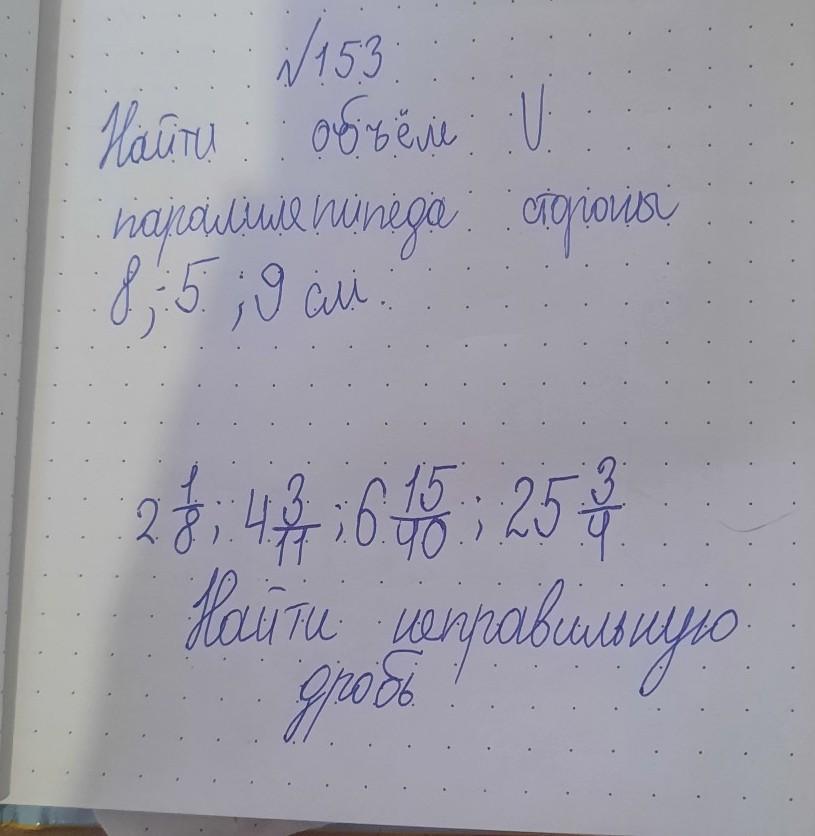 №153
Найти объём V
паралилепипеда стороны
8; 5; 9 см.
2 1/8; 4 3/11; 6 15/40; 25 3/4
Найти неправильную
дробь